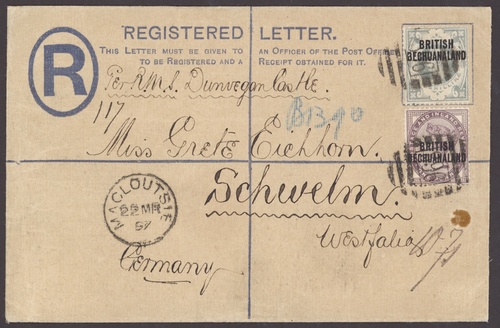 REGISTERED LETTER.
THIS LETTER MUST BE GIVEN TO AN OFFICER OF THE POST OFFICE
TO BE REGISTERED AND A RECEIPT OBTAINED FOR IT.
R
BRITISH
BECHUANALAND
Per R.M.S. Dunvegan Castle.
117
B1390
Miss Grete Eichhorn.
BRITISH
BECHUANALAND
Schwelm.
MACLOUTSIE
22 MR
97
Westfalia
Germany